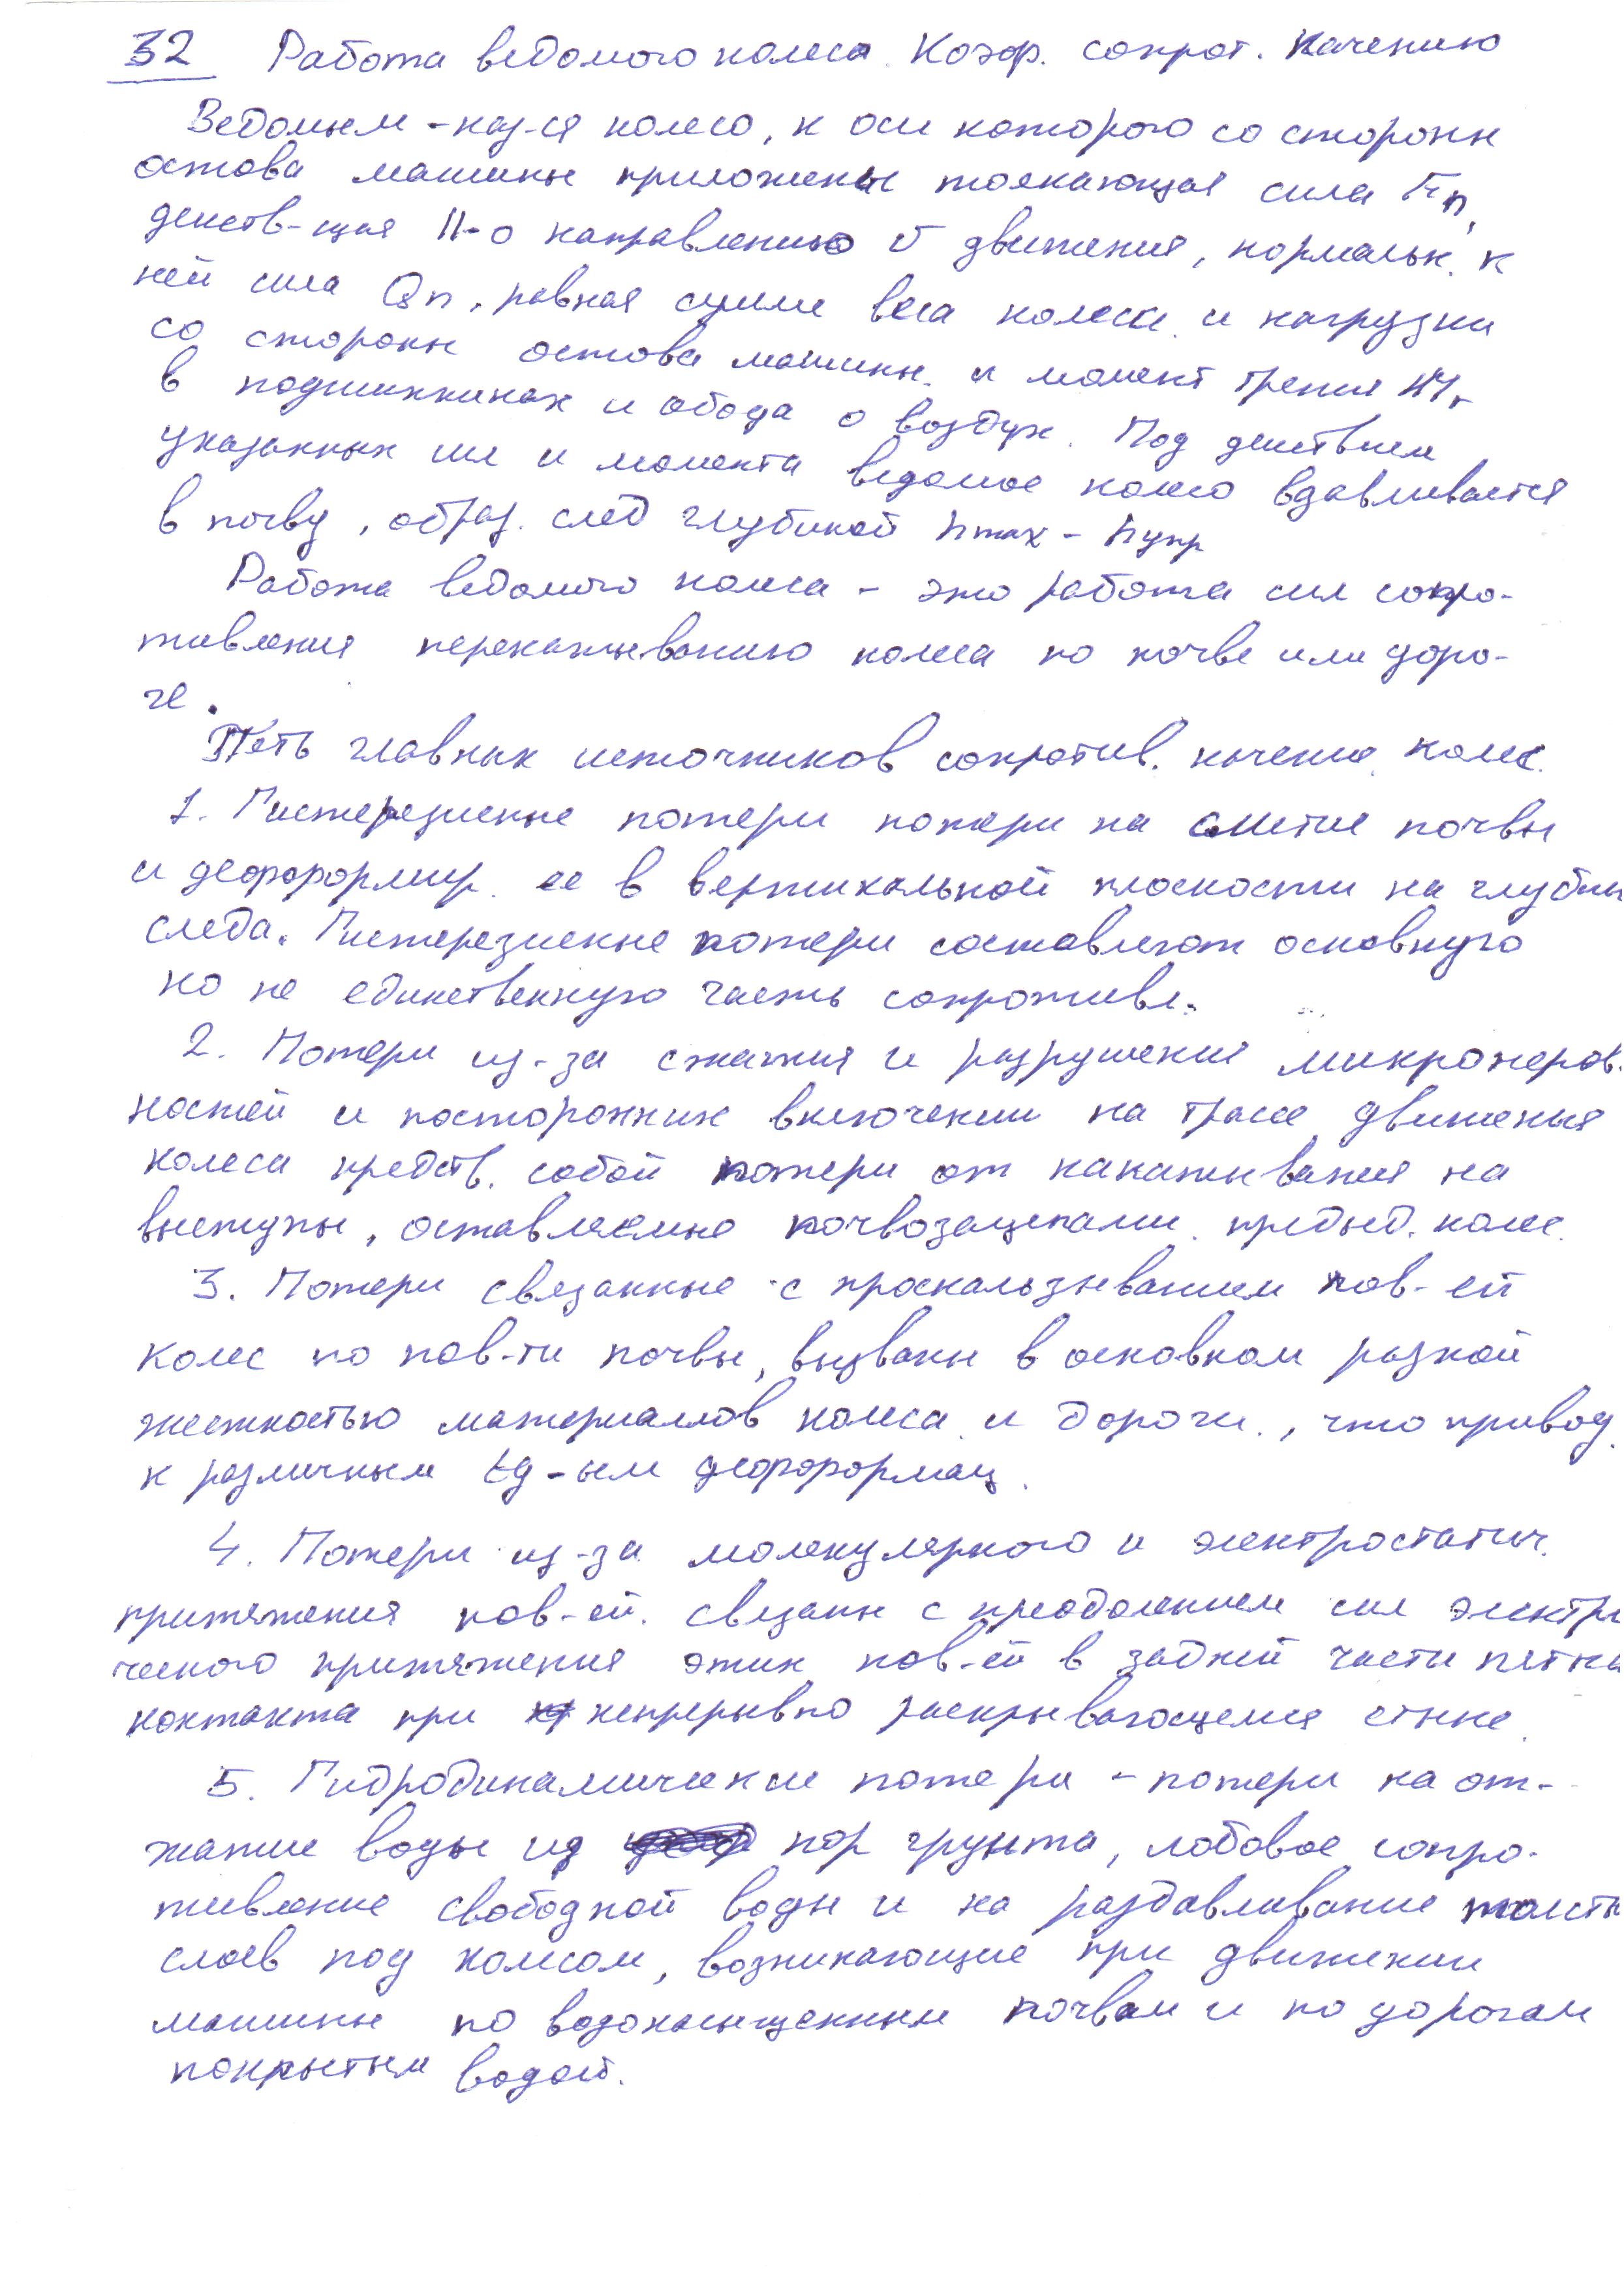 32 Работа ведомого колеса. Коэф. сопрот. качению
Ведомым - наз-ся колесо, к оси которого со стороны
остова машины приложены толкающая сила Fп,
действ-щая ||-о направлению υ движения, нормальн. к
ней сила Qп, равная сумме веса колеса и нагрузки
со стороны остова машины и момент трения Mr
в подшипниках и обода о воздух. Под действием
указанных сил и момента ведомое колесо вдавливается
в почву, образ. след глубиной hmax - hупр
Работа ведомого колеса - это работа сил сопро-
тивления перекатыванию колеса по почве или доро-
ге.
Пять главных источников сопротив. качения колес.
1. Гистерезисные потери потери на смятие почвы
и деформир. ее в вертикальной плоскости на глубин
следа. Гистерезисные потери составляют основную
но не единственную часть сопротивл.
2. Потери из-за сжатия и разрушения микронеров.
ностей и посторонних включений на трассе движения
колеса предств. собой потери от накатывания на
выступы, оставляемые почвозацепами предыд. колес.
3. Потери связанные с проскальзыванием пов-ей
колес по пов-ти почвы, вызваны в основном разной
жесткостью материаллов колеса и дороги, что привод.
к различным tg-ым деформац.
4. Потери из-за молекулярного и электростатич.
притяжения пов-ей. связаны с преодолением сил электри
ческого притяжения этих пов-ей в задней части пятна
контакта при непрерывно раскрывающемся стыке.
5. Гидродинамические потери - потери на от-
жатие воды из пор грунта, лобовое сопро-
тивление свободной воды и на раздавливание толсты
слоев под колесом, возникающие при движении
машины по водонасыщенным почвам и по дорогам
покрытым водой.